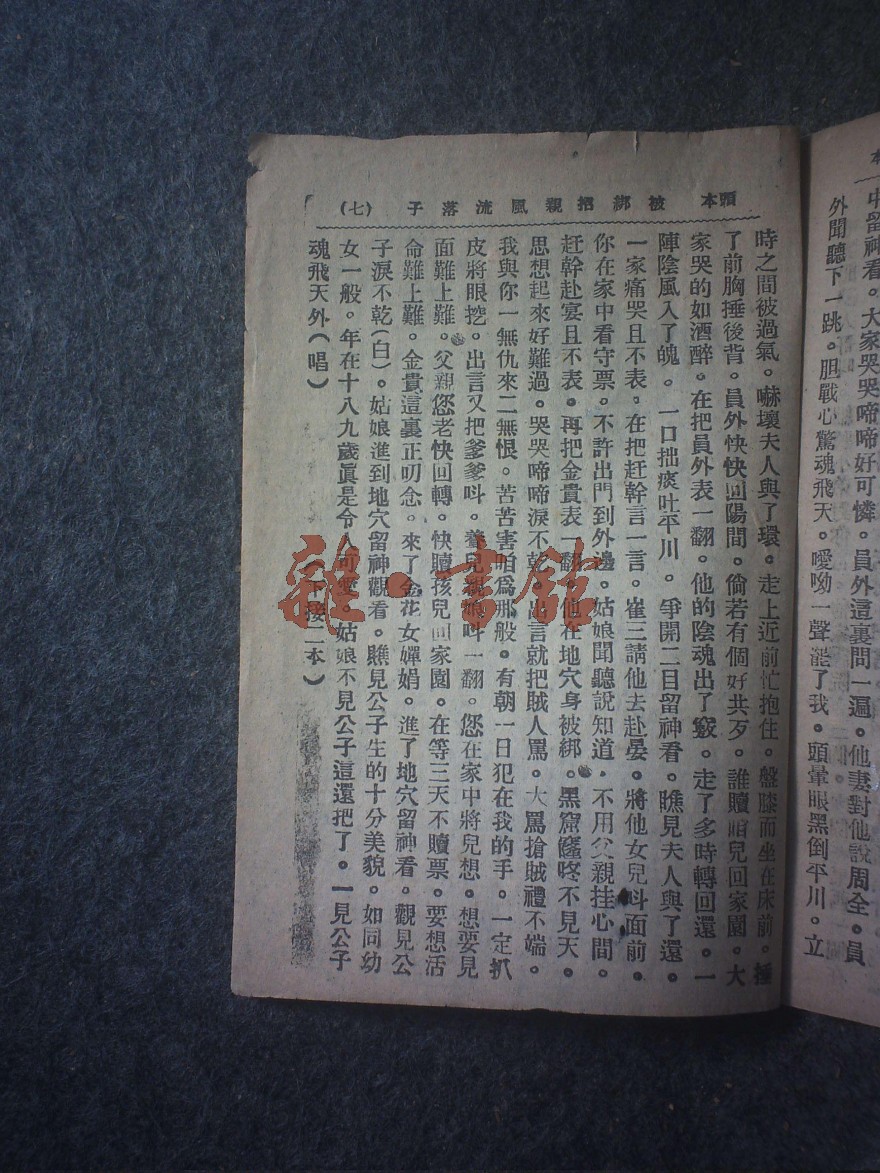 中留神看。大家哭哭啼啼好可憐。員外這裏問一遍。他妻對他說周全。員
外聞聽下一跳。胆戰心驚魂飛天。噯呦一聲罷了我。頭暈眼黑倒平川。立
頭本 被綁招親風流落子 (七)
時之間被過氣。嚇壞夫人與了環。走上近前忙抱住。盤膝而坐在床前。捶
了前胸捶後背。員外快快回陽間。倘若有個好共歹。誰贖咱兒回家園。大
家哭的如酒醉。在把員外表一翻。他的陰魂出了竅。走了多時轉回還。一
陣陰風入了魄。一口拙痰吐平川。爭開二目留神看。瞧見夫人與了還。
一家痛哭且不表。在把赶幹言一言。崔三請他去赴晏。將他女兒呌面前。
你在家中看守票。不許出門到外邊。姑娘聞聽說知道。不用父親挂心間。
赶幹赴宴且不表。再把金貴表一翻。他在地穴身被綁。黑窟窿咚不見天。
思想起來好難過。哭哭啼啼淚不乾。出言就把賊人罵。大罵搶賊禮不端。
我與你一無仇來二無恨。苦苦害咱爲那般。有朝一日犯在我的手。一定扒
皮將眼挖。出言又把爹爹呌。養兒親娘呌一翻。您在家中將兒想。想要見
面難上難。父親您老快回轉。快贖孩兒回家園。在等三天不贖票。要想活
命難上難。金貴這裏正叨念。來了金花女嬋娟。進了地穴留神看。觀見公
子淚不乾(白)。姑娘進到地穴留神觀看。瞧見公子生的十分美貌。如同幼
女一般。年在十八九歲眞是令人可愛。姑娘不見公子這還把了。一見公子
魂飛天外(唱)
(下接二本)
雜·書館